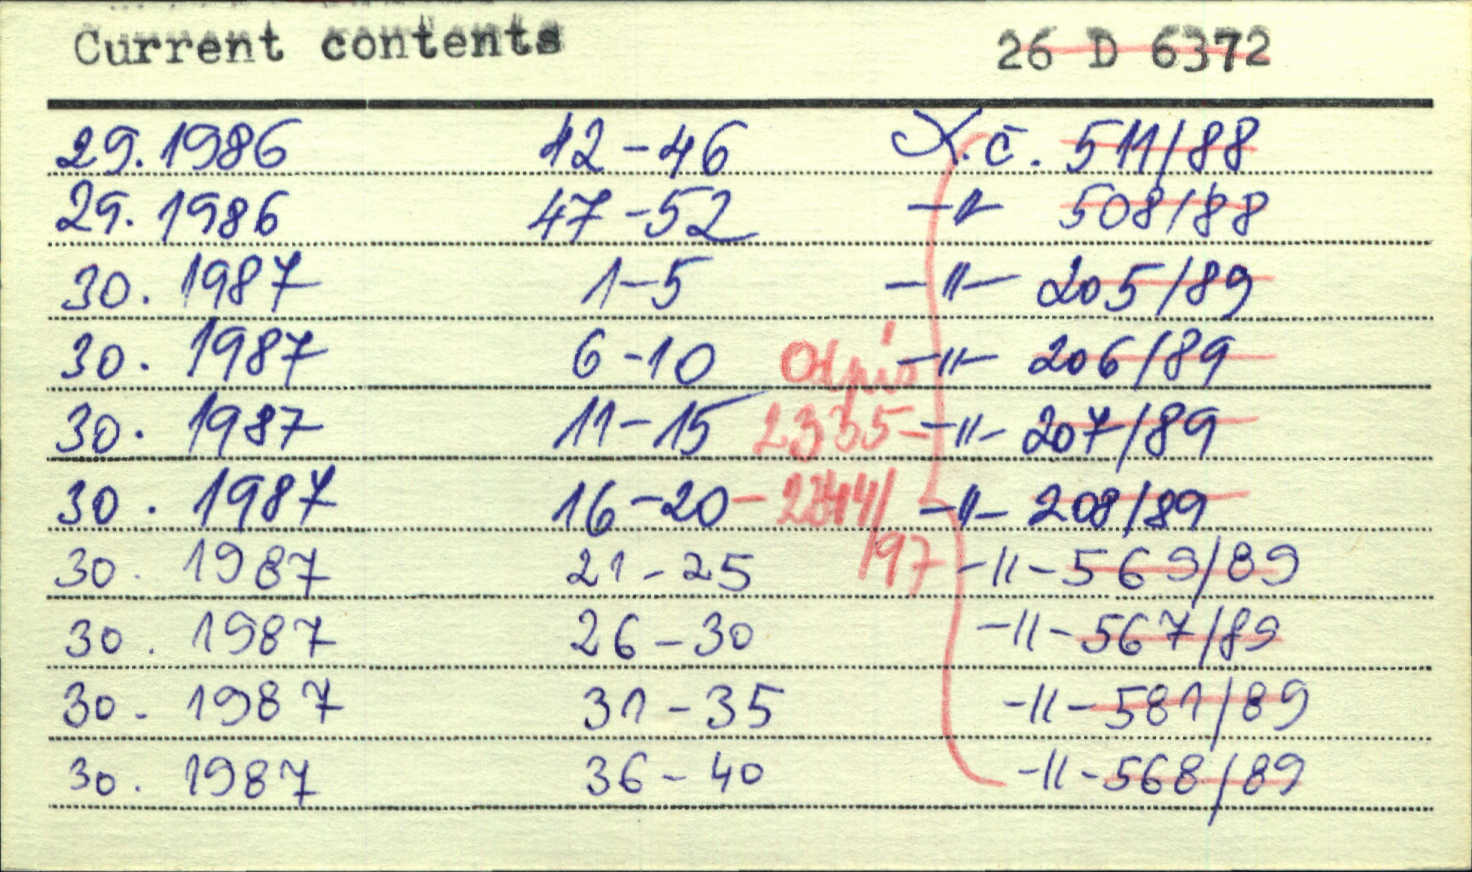 Current contents 26 D 6372
29. 1986 42-46 X.č. 511/88
29. 1986 47-52 -"- 508/88
30. 1987 1-5 -"- 205/89
30. 1987 6-10 Odpis -"- 206/89
30. 1987 11-15 2335- -"- 207/89
30. 1987 16-20 -2344/ -"- 208/89
/97
30. 1987 21-25 -"- 569/89
30. 1987 26-30 -"- 567/89
30. 1987 31-35 -"- 581/89
30. 1987 36-40 -"- 568/89